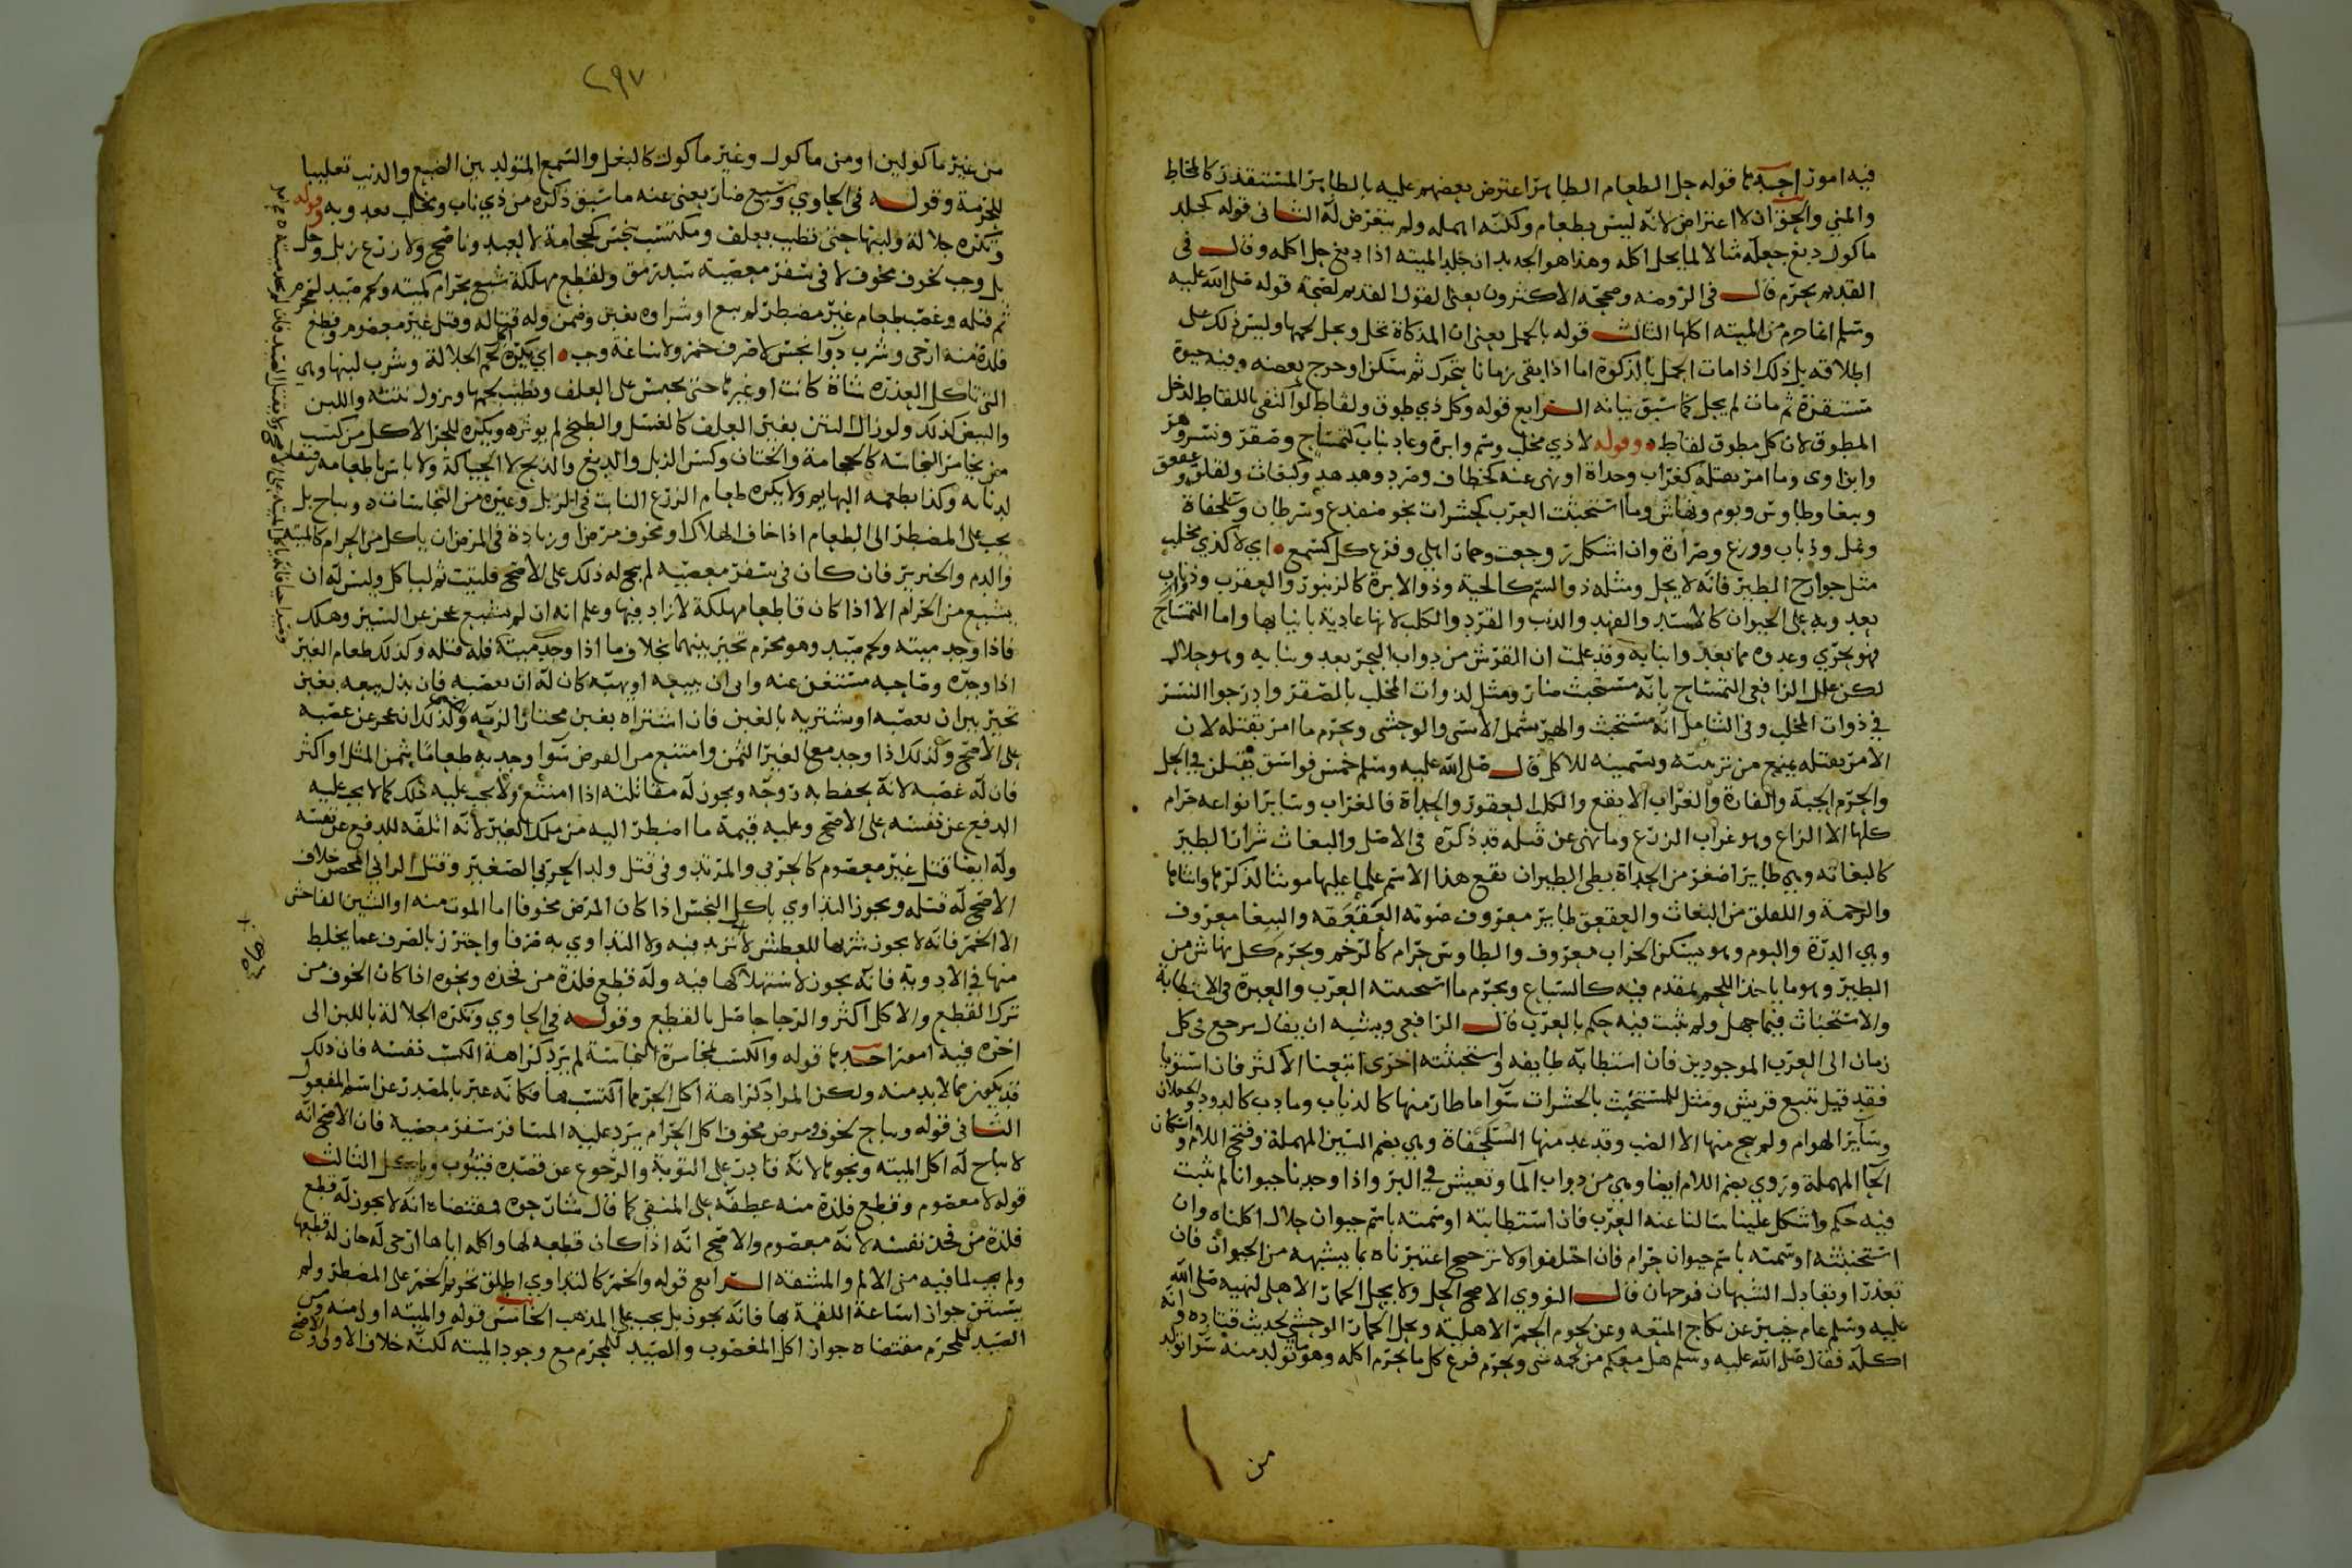 فيه امور احدها قوله حل الطعام الطاهر اعترض بعضهم عليه بالطاهر المستقذر كالمخاط
والمني والحق ان لا اعتراض لانه ليس بطعام ولكنه اهمله ولم يتعرض له الثانى قوله كجلد
ماكول دبغ جعله مثالا لما يحل اكله وهذا هو الجديد ان جلد الميته اذا دبغ حل اكله وقال فى
القديم يحرم قال فى الروضه وصححه الاكثرون يعنى القول القديم لصحة قوله صلى الله عليه
وسلم انما حرم من الميته اكلها الثالث قوله بالحمل يعنى ان المذكاة تحل ويحل حملها وليس ذلك على
اطلاقه بل ذلك اذا مات الحمل بالذكوة اما اذا بقى زمانا يتحرك ثم سكن او خرج بعضه وفيه حيوة
مستقرة ثم مات لم يحل كما سبق بيانه الرابع قوله وكل ذي طوق ولقاط لو اكتفى باللقاط لدخل
المطوق لان كل مطوق لقاط وقوله لا ذي مخلب وسم وابرة وعاد بناب كتمساح وصقر ونسر وهر
وابن اوى وما امر بقتله كغراب وحداة او نهى عنه كخطاف وصرد وهدهد وكبغاث ولقلق وعقعق
وببغا وطاوس وبوم ونهاش وما استخبثت العرب كحشرات نحو ضفدع وسرطان وسلحفاة
ونمل وذباب ووزغ وصرارة وان اشكل رجعت وحمار اهلي وفرع كل كسمع اي لا كذي مخلب
مثل جوارح الطير فانه لا يحل ومثله ذو السم كالحية وذو الابرة كالزنبور والعقرب وذوناب
يعدو به على الحيوان كالاسد والفهد والذئب والقرد والكلب لانها عادية بانيابها واما التمساح
فهو بحري وعدوه مما يعد وانيابه وقد علمت ان القرش من دواب البحر يعدو بنابه وهو حلال
لكن علل الرافعى التمساح بانه مستخبث ضار ومثل لذوات المخلب بالصقر وادرجوا النسر
في ذوات المخلب وفى الشامل انه مستخبث والهر يشمل الانسى والوحشى ويحرم ما امر بقتله لان
الامر بقتله يمنع من تربيته وتسمينه للاكل قال صلى الله عليه وسلم خمس فواسق يقتلن في الحل
والحرم الحية والفارة والغراب الابقع والكلب العقور والحداة فالغراب وسائر انواعه حرام
كلها الا الزاغ وهو غراب الزرع وما نهى عن قتله قد ذكره فى الاصل والبغاث شرار الطير
كالبغاثه وهي طاير اصغر من الحداة بطى الطيران يقع هذا الاسم علما عليها مونثا لذكرها وانثاها
والرخمة واللقلق من البغاث والعقعق طاير معروف صوته العقعقه والببغا معروف
وهي الدرة والبوم وهو يسكن الخراب معروف والطاوس حرام كالرخم ويحرم كل نهاش من
الطير وهو ما ياخذ اللحم بمقدم فيه كالسباع ويحرم ما استخبثته العرب والعبرة فى الاستطابة
والاستخباث فيما جهل ولم يثبت فيه حكم بالعرب قال الرافعى ويشبه ان يقال يرجع فى كل
زمان الى العرب الموجودين فان استطابه طايفه واستخبثته اخرى اتبعنا الاكثر فان استويا
فقد قيل نتبع قريش ومثل للمستخبث بالحشرات سوا ما طار منها كالذباب وما دب كالدود والجعلان
وسائر الهوام ولم يبح منها الا الضب وقد عد منها السلحفاة وهي بضم السين المهملة وفتح اللام واسكان
الحا المهملة وروي بضم اللام ايضا وهي من دواب الما وتعيش في البر واذا وجدنا حيوانا لم يثبت
فيه حكم واشكل علينا سالنا عنه العرب فان استطابته او سمته باسم حيوان حلال اكلناه وان
استخبثته او سمته باسم حيوان حرام فان اختلفوا ولا ترجيح اعتبرناه بما يشبهه من الحيوان فان
تعذر او تعادل الشبهان فوجهان قال النووي الاصح الحل ولا يحل الحمار الاهلى لنهيه صلى الله
عليه وسلم عام خيبر عن نكاح المتعه وعن لحوم الحمر الاهلية ويحل الحمار الوحشي لحديث قتاده وانه
اكله فقال صلى الله عليه وسلم هل معكم من لحمه شى ويحرم فرع كل ما يحرم اكله وهو تولد منه سوا تولد
من
٢٩٧
من غير ماكولين او من ماكول وغير ماكول كالبغل والسمع المتولد بين الضبع والذئب تغليبا
للحرمة وقوله فى الحاوي وسبع ضار يعنى عنه ما سبق ذكره من ذي ناب ومخلب يعدو به وقوله
وتكره جلالة ولبنها حتى تطيب بعلف ومكتسب بنجس كحجامة لا لعبد وناضح ولا زرع زبل وحل
بل وجب لخوف مخوف لا فى سفر معصية سد رمق ولقطع مهلكة شبع بحرام كميته ولحم صيد لمحرم
ثم قتله وغصب طعام غير مضطر لم يبع او شراوه بغبن وضمن وله قتاله وقتل غير معصوم وقطع
فلذة منه ارجى وشرب دوا نجس لا صرف خمر ولاساغة وجب اي يكره لحم الجلالة وشرب لبنها وهي
التي تاكل العذره شاة كانت او غيرها حتى تحبس على العلف ويطيب لحمها ويزول نتنه واللبن
والبيض كذلك ولو زال النتن بغير العلف كالغسل والطبخ لم يوثره ويكره للحر الاكل من كسب
من يخامر النجاسه كالحجامة والختان وكنس الزبل والدبغ والذبح لا الحياكة ولا باس باطعامه رقيقه
لدنائه وكذا يطعمه البهايم ولا يكره طعام الزرع النابت فى الزبل وغيره من النجاسات ويباح بل
يجب على المضطر الى الطعام اذا خاف الهلاك او مخوف مرض او زيادة فى المرض ان ياكل من الحرام كالميته
والدم والخنزير فان كان فى سفر معصيه لم يبح له ذلك على الاصح فليتب ثم لياكل وليس له ان
يشبع من الحرام الا اذا كان قاطعا مهلكة لا زاد فيها وعلم انه ان لم يشبع عجز عن السير وهلك
فاذا وجد ميته ولحم صيد وهو محرم تخير بينهما بخلاف ما اذا وجد ميتة فله قتله وكذلك طعام الغير
اذا وجده وصاحبه مستغن عنه وابى ان يبيعه او يهبه كان له ان يغصبه فان بذل بيعه بغبن
تخير بين ان يغصبه او يشتريه بالغبن فان اشتراه بغبن مختارا لزمه وكذلك ان عجز عن غصبه
على الاصح وكذلك اذا وجد مع الغير الثمن وامتنع من القرض سوا وجد به طعاما بثمن المثل او اكثر
فان له غصبه لانه يحفظ به روحه ويجوز له مقاتلته اذا امتنع ولا يجب عليه ذلك كما لا يجب عليه
الدفع عن نفسه على الاصح وعليه قيمة ما اضطر اليه من ملك الغير لانه اتلفه للدفع عن نفسه
وله ايضا قتل غير معصوم كالحربي والمرتد وفى قتل ولد الحربي الصغير وقتل الزاني المحصن خلاف
الاصح له قتله ويجوز التداوي باكل النجس اذا كان المرض مخوفا اما الموت منه او الشين الفاحش
الا الخمر فانه لا يجوز شربها للعطش لانه يزيد فيه ولا التداوي به صرفا واحترز بالصرف عما يخلط
منها في الادوية فانه يجوز لاستهلاكها فيه وله قطع فلذة من فخذه ونحوه اذا كان الخوف من
ترك القطع والاكل اكثر والرجا حاصل بالقطع وقوله فى الحاوي وتكره الجلالة باللبن الى
اخره فيه امور احدها قوله والكسب بمخامرة النجاسة لم يرد كراهة الكسب نفسه فان ذلك
قد يكون مما لا بد منه ولكن المراد كراهة اكل الحر مما اكتسب بها فكانه عبر بالمصدر عن اسم المفعول
الثانى قوله ويباح لخوف ومرض مخوف اكل الحرام يرد عليه المسافر سفر معصية فان الاصح انه
لا يباح له اكل الميته ونحوها لانه قادر على التوبة والرجوع عن قصده فيتوب وياكل الثالث
قوله لا معصوم وقطع فلذة منه عطفه على المنفى كما قال شارحوه فمقتضاه انه لا يجوز له قطع
فلذة من فخذ نفسه لانه معصوم والاصح انه اذا كان قطعه لها واكله اياها ارجى له جاز له قطعها
ولم يجب لما فيه من الالم والمشقه الرابع قوله والخمر كالتداوي اطلق تحريم الخمر على المضطر ولم
يستثن جواز اساغة اللقمة بها فانه يجوز بل يجب على المذهب الخامس قوله والميته اولى منه ومن
الصيد للمحرم مقتضاه جواز اكل المغصوب والصيد للمحرم مع وجود الميته لكنه خلاف الاولى والاصح